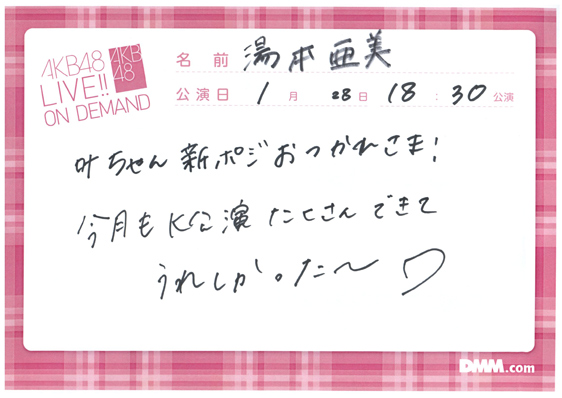 AKB48
LIVE!!
ON DEMAND
AKB
48
名前 湯本亜美
公演日 1月 28日 18:30公演
叶ちゃん 新ポジおつかれさま!
今月もK公演たくさんできて
うれしかった〜♡
DMM.com